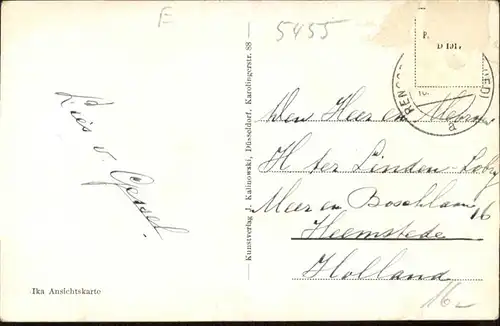 E
5455
P.
D 1917
RENO
(RED)
Ries v. Gessel.
Kunstverlag J. Kalinowski, Düsseldorf, Karolingerstr. 88
Den Heer en Mevr.
H ter Linden-
Meer en Boschlaan 16
Heemstede
Holland
Ika Ansichtskarte